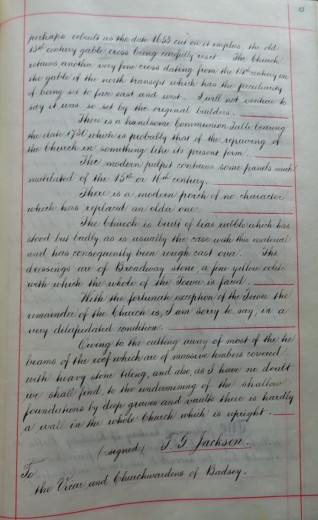 perhaps rebuilt as the date 1653 cut on it implies, the old
15th century gable cross being carefully reset. The Church
retains another very fine cross dating from the 14th century on
the gable of the north transept which has the peculiarity
of being set to face east and west. I will not venture to
say it was so set by the original builders.
There is a handsome Communion Table bearing
the date 1730 which is probably that of the repewing of
the Church in something like its present form.
The modern pulpit contains some panels much
mutilated of the 15th or 16th century.
There is a modern porch of no character
which has replaced an older one.
The Church is built of lias rubble which has
stood but badly as is usually the case with this material
and has consequently been rough cast over. The
dressings are of Broadway stone, a fine yellow oolite
with which the whole of the Tower is faced.
With the fortunate exception of the Tower the
remainder of the Church is, I am sorry to say, in a
very delapedated condition.
Owing to the cutting away of most of the tie
beams of the roof which are of massive timbers covered
with heavy stone tileing, and also, as I have no doubt
we shall find to the undermining of the shallow
foundations by deep graves and vaults there is hardly
a wall in the whole Church which is upright.
(signed) T. G. Jackson.
To
the Vicar and Churchwardens of Badsey.